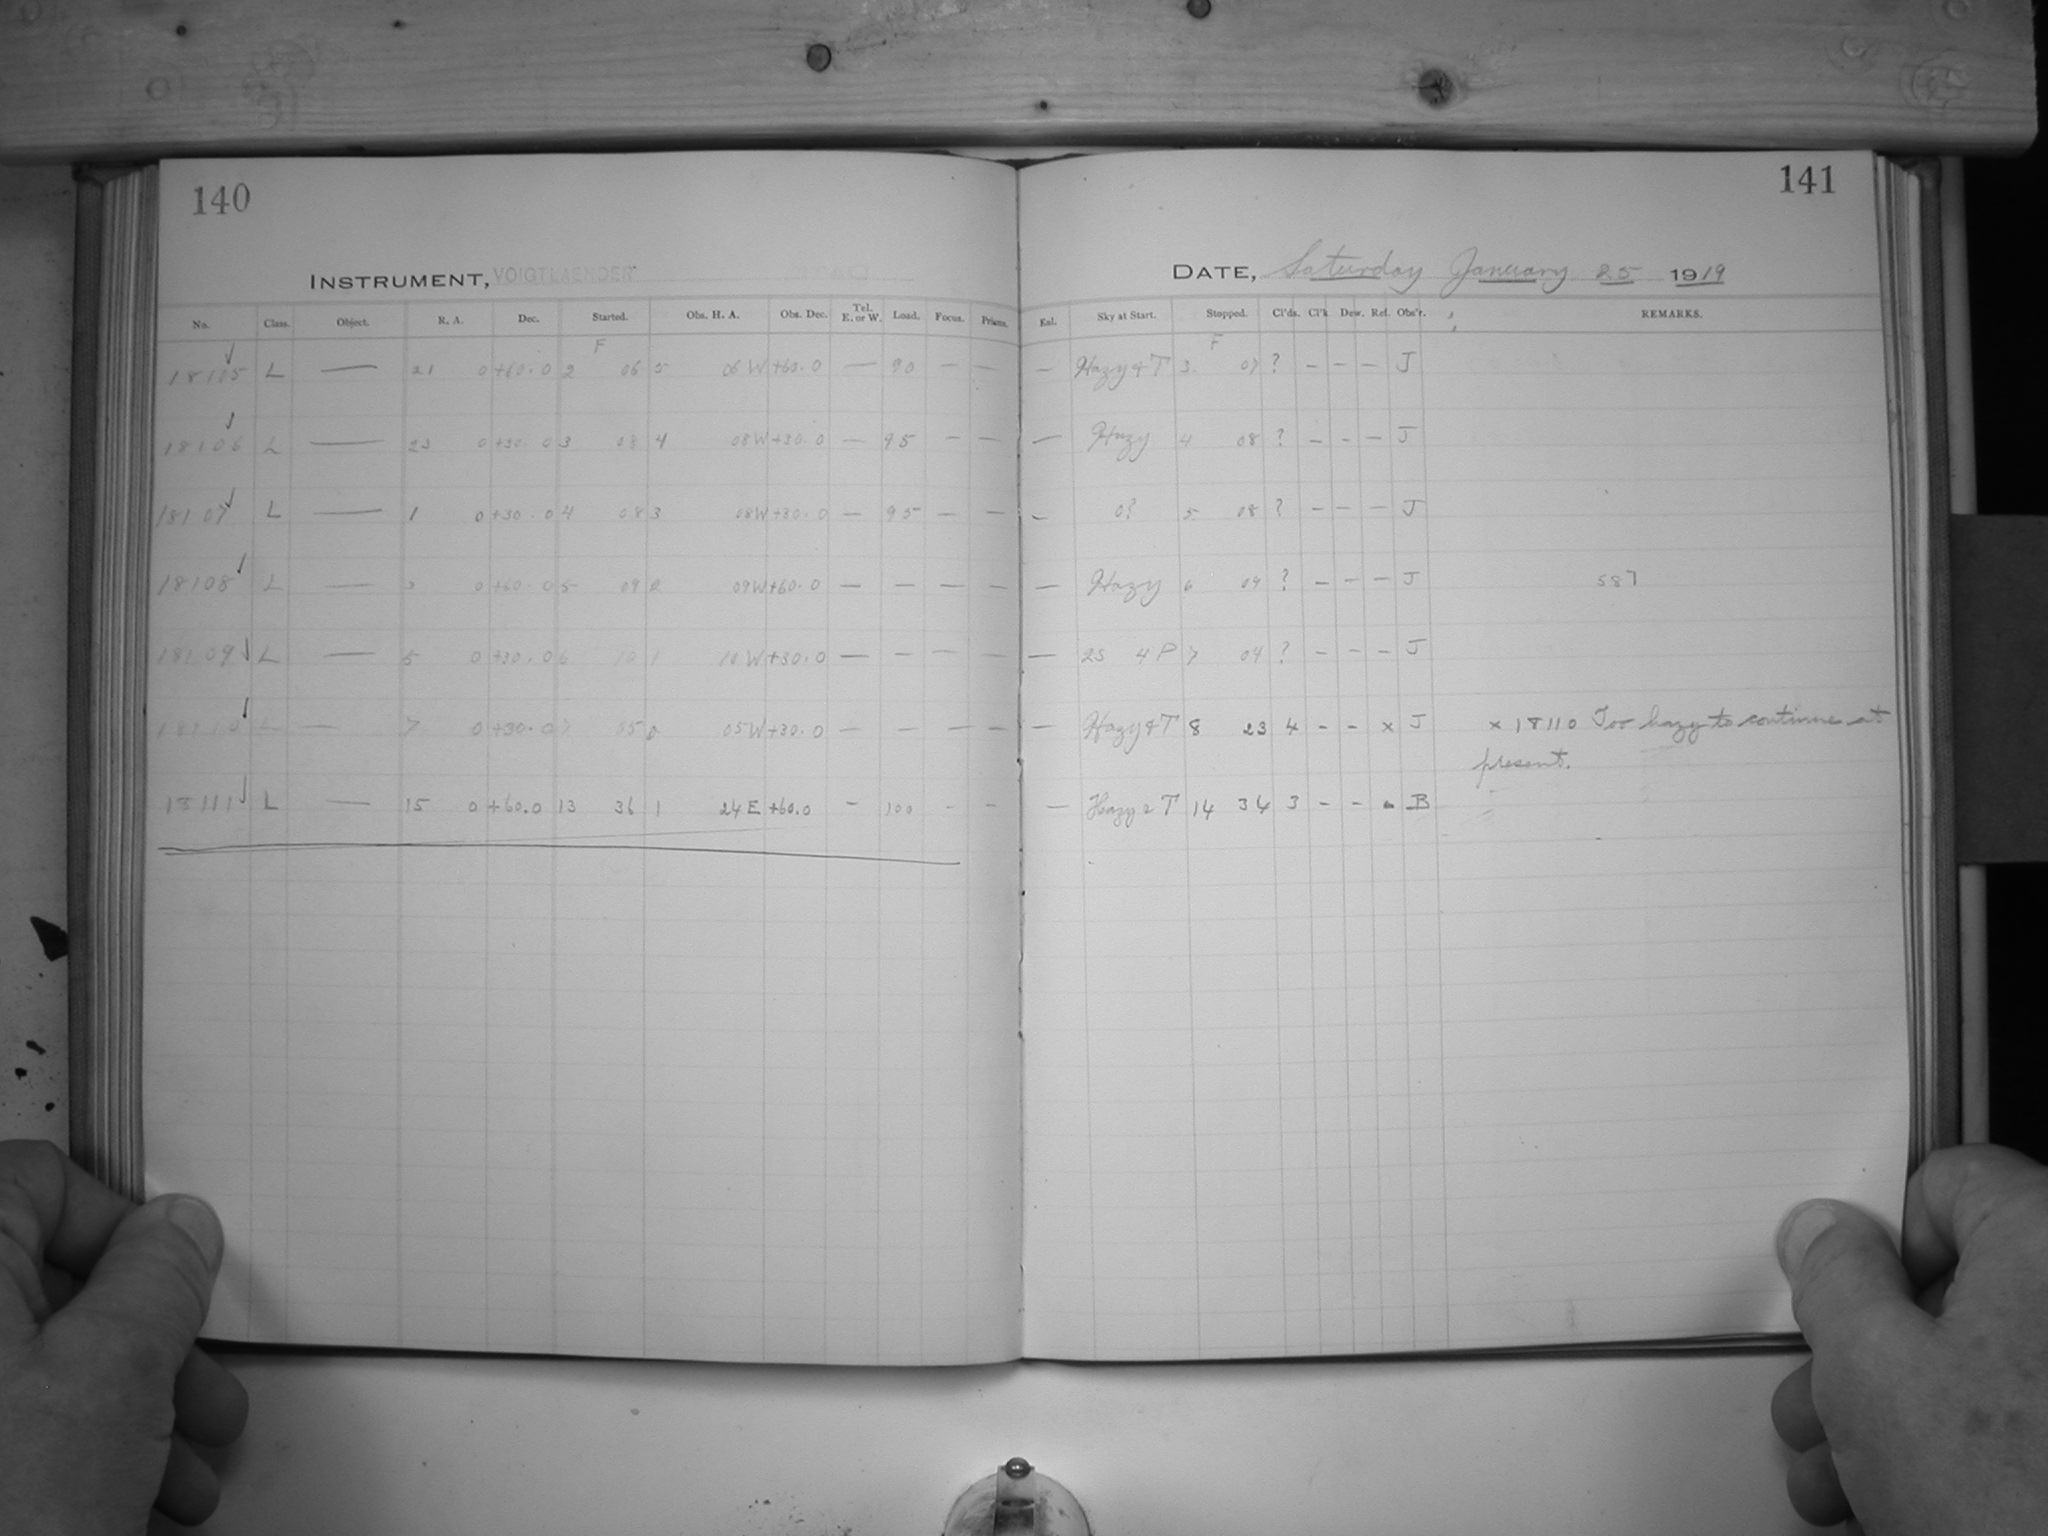 140
141
INSTRUMENT, VOIGTLAENDER
DATE, Saturday January 25 1919
No. Class. Object. R. A. Dec. Started. Obs. H. A. Obs. Dec. Tel. E. or W. Load. Focus. Prisms. Enl. Sky at Start. Stopped. Cl'ds. Cl'k Dew. Ref. Obs'r. REMARKS.
F F
18105 L — 21 0 +60.0 2 06 5 06 W +60.0 — 90 — — — Hazy & T 3 07 ? – – – J
18106 L — 23 0 +30.0 3 08 4 08 W +30.0 — 95 — — — Hazy 4 08 ? – – – J
18107 L — 1 0 +30.0 4 08 3 08 W +30.0 — 95 — — — 0? 5 08 ? – – – J
18108 L — 0 +60.0 5 09 09 W +60.0 — — — — — Hazy 6 09 ? – – – J 587
18109 L — 5 0 +30.0 6 10 1 10 W +30.0 — — — — — 2S 4 P 7 04 ? – – – J
18110 L — 7 0 +30.0 7 05 0 05 W +30.0 — — — — — Hazy & T 8 23 4 – – x J x 18110 Too hazy to continue at
present.
18111 L — 15 0 +60.0 13 36 1 24 E +60.0 – 100 – – — Hazy & T 14 34 3 – – - B